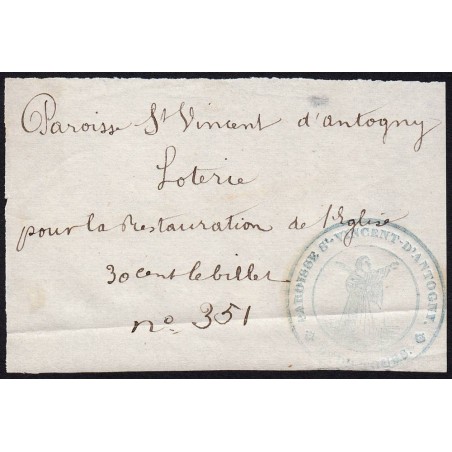 Paroisse St Vincent d'Antogny
Loterie
pour la Restauration de l'Eglise
30 cent le billet
no 351
PAROISSE St-VINCENT-D'ANTOGNY.